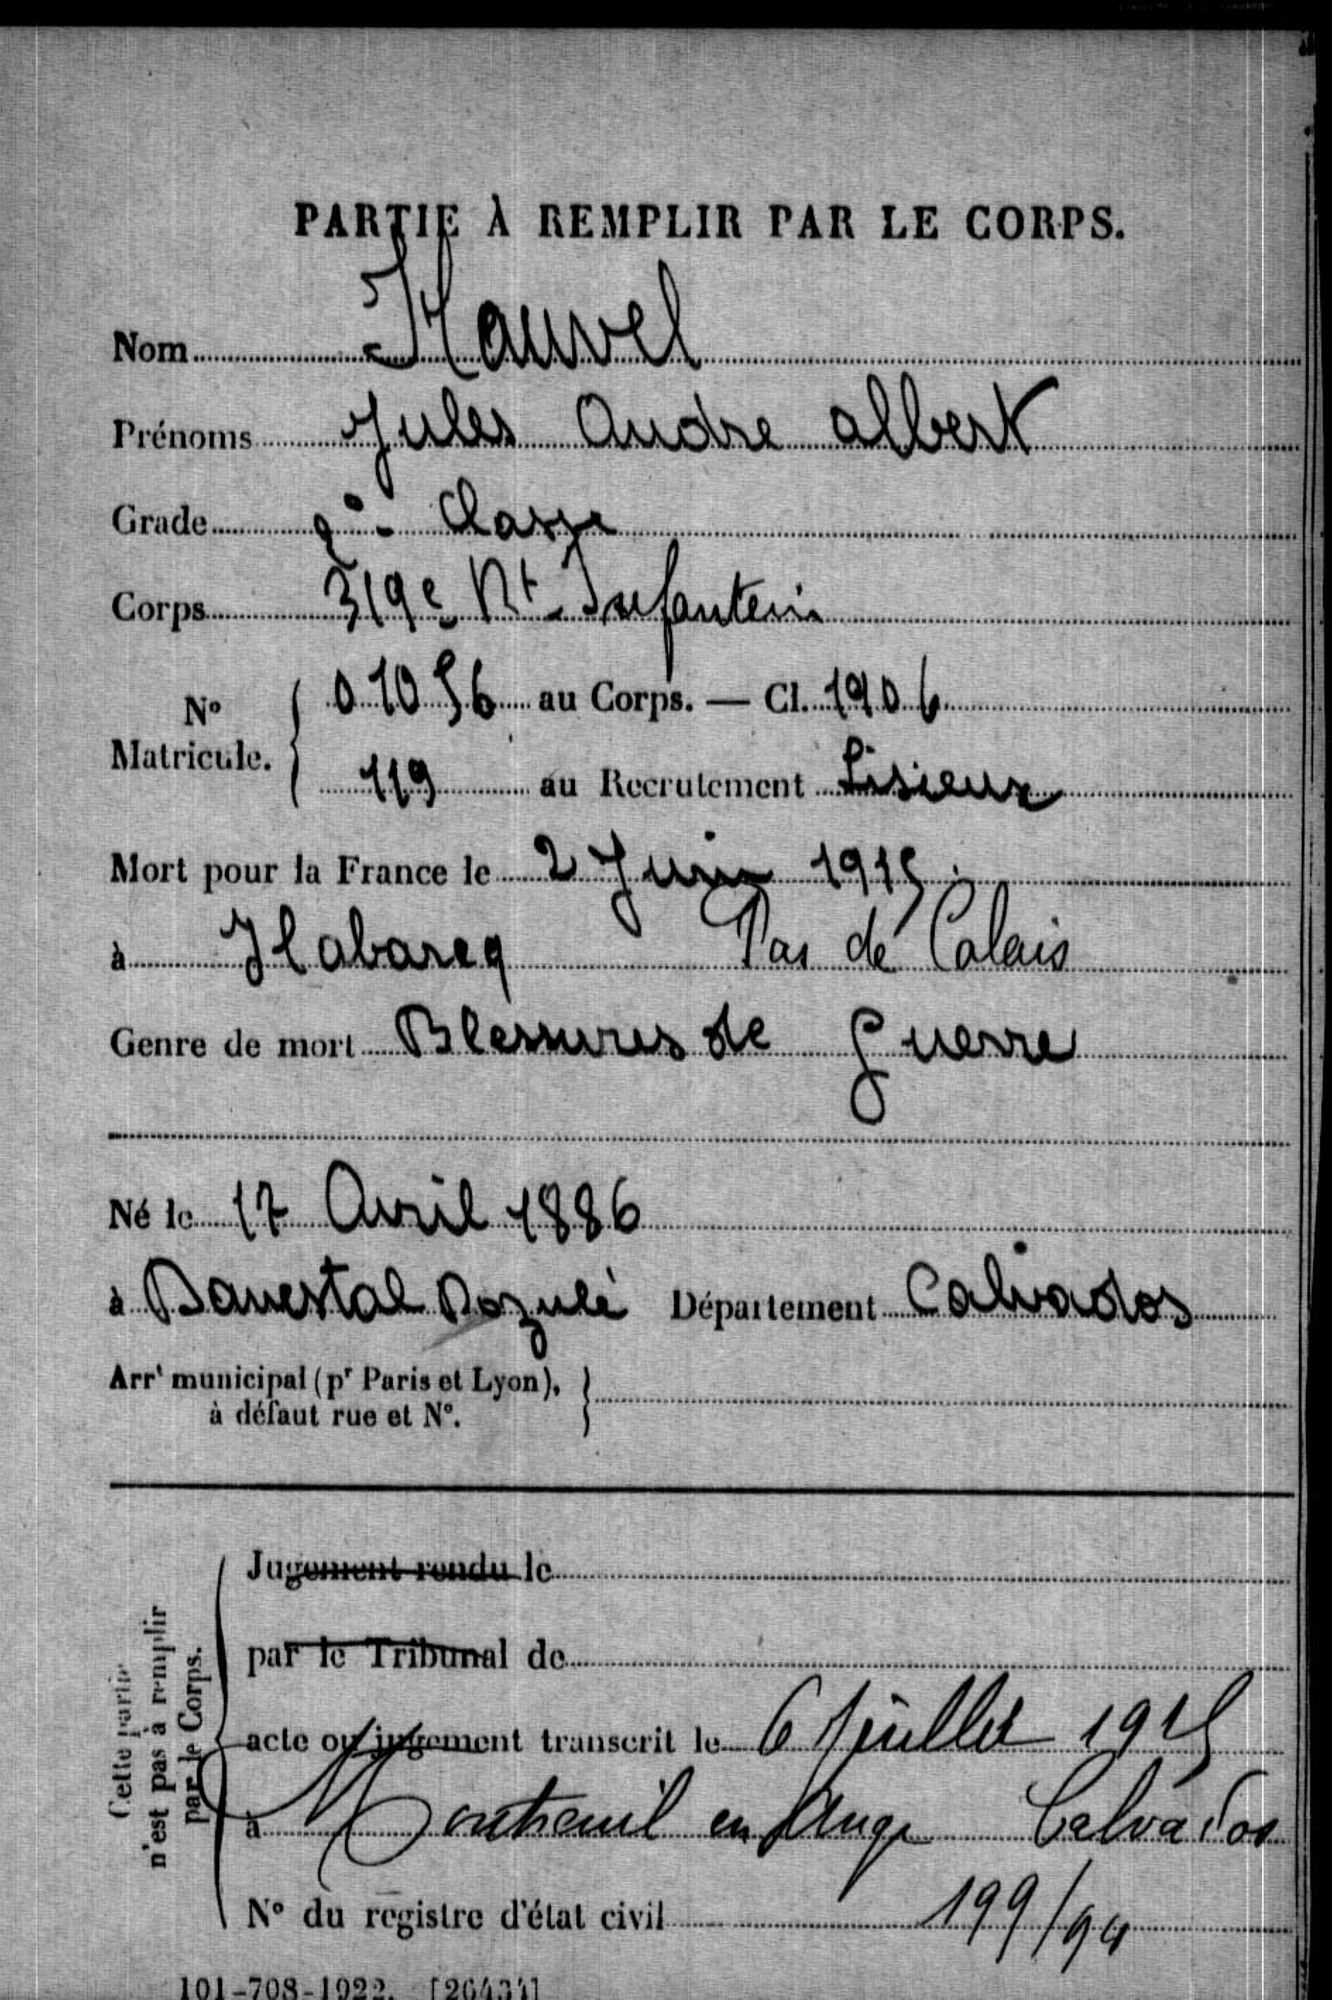 PARTIE À REMPLIR PAR LE CORPS.
Nom Hauvel
Prénoms Jules Andre Albert
Grade 2e Classe
Corps 319e Rt Infanterie
No Matricule. { 01056 au Corps. — Cl. 1906
119 au Recrutement Lisieux
Mort pour la France le 2 Juin 1915
à Habarcq Pas de Calais
Genre de mort Blessures de Guerre
Né le 17 Avril 1886
à Danestal Dozulé Département Calvados
Arrt municipal (pr Paris et Lyon), à défaut rue et No. }
Cette partie n'est pas à remplir par le Corps.
Jugement rendu le
par le Tribunal de
acte ou jugement transcrit le 6 Juillet 1915
à Montreuil en Auge Calvados
No du registre d'état civil 199/94
101-708-1922. [26434]